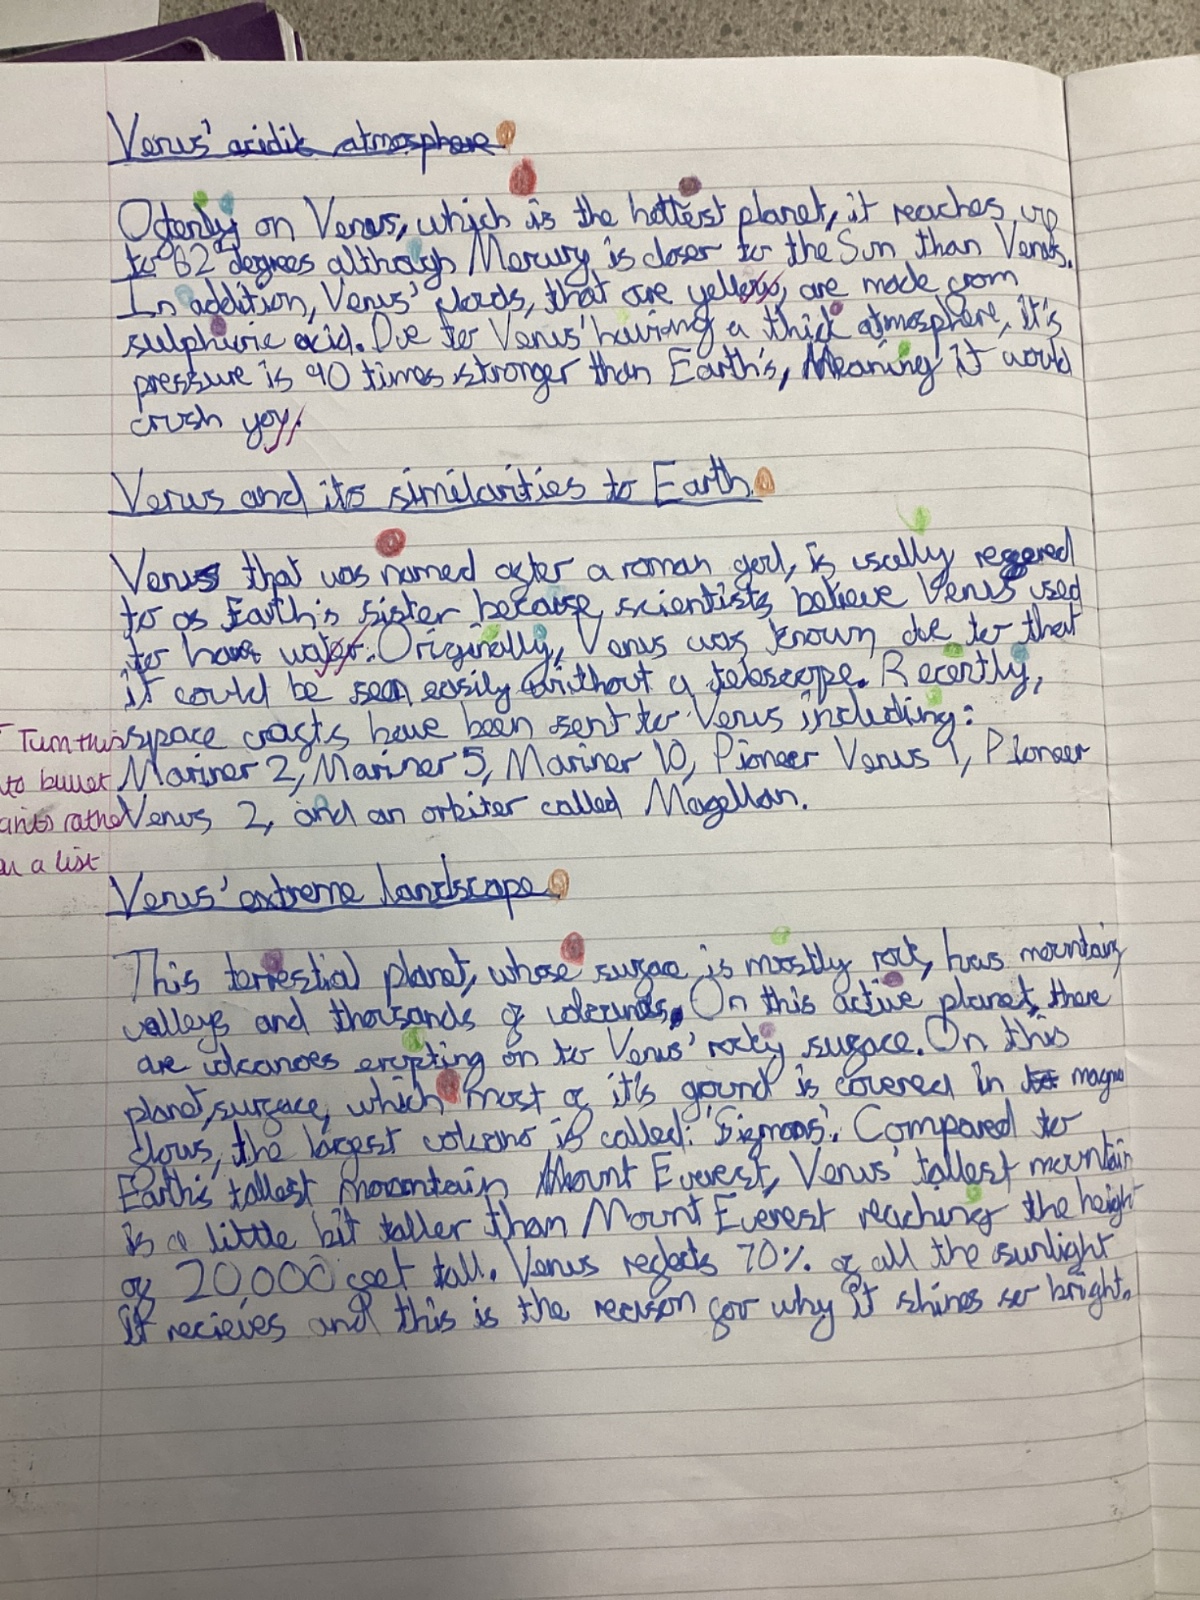 Venus' acidic atmosphere
Oftenly on Venus, which is the hottest planet, it reaches up
to 62 degrees although Mercury is closer to the Sun than Venus.
In addition, Venus' clouds, that are yellow, are made from
sulphuric acid. Due to Venus' having a thick atmosphere, it's
pressure is 90 times stronger than Earth's, Meaning it would
crush you.
Venus and its similarities to Earth
Venus that was named after a roman god, is usally refered
to as Earth's sister because scientists believe Venus used
to have water. Originally, Venus was known due to that
it could be seen easily without a telescope. Recently,
Turn this space crafts have been sent to Venus including:
to bullet Mariner 2, Mariner 5, Mariner 10, Pioneer Venus 1, Pioneer
rathe Venus 2, and an orbiter called Magellan.
a list
Venus' extreme landscape
This terrestial planet, whose surface is mostly rock, has mountains
valleys and thousands of volcanos. On this active planet, there
are volcanoes erupting on to Venus' rocky surface. On this
planet, surface, which most of it's ground is covered in magma
flows, the largest volcano is called: Compared to
Earth's tallest mountain Mount Everest, Venus' tallest mountain
is a little bit taller than Mount Everest reaching the height
of 20,000 feet tall. Venus reflects 70% of all the sunlight
it recieves and this is the reason for why it shines so bright.